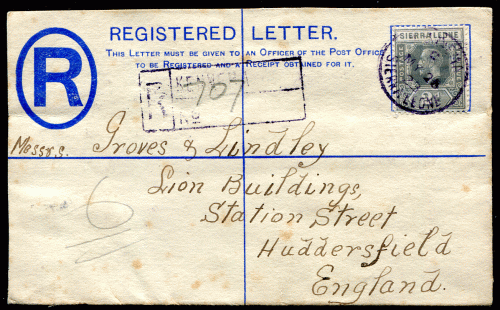 R
REGISTERED LETTER.
THIS LETTER MUST BE GIVEN TO AN OFFICER OF THE POST OFFICE
TO BE REGISTERED AND A RECEIPT OBTAINED FOR IT.
SIERRA LEONE
POSTAGE
R
KENNEMA
707
No
Messrs. Groves & Lindley
Lion Buildings,
Station Street
Huddersfield
England.
6